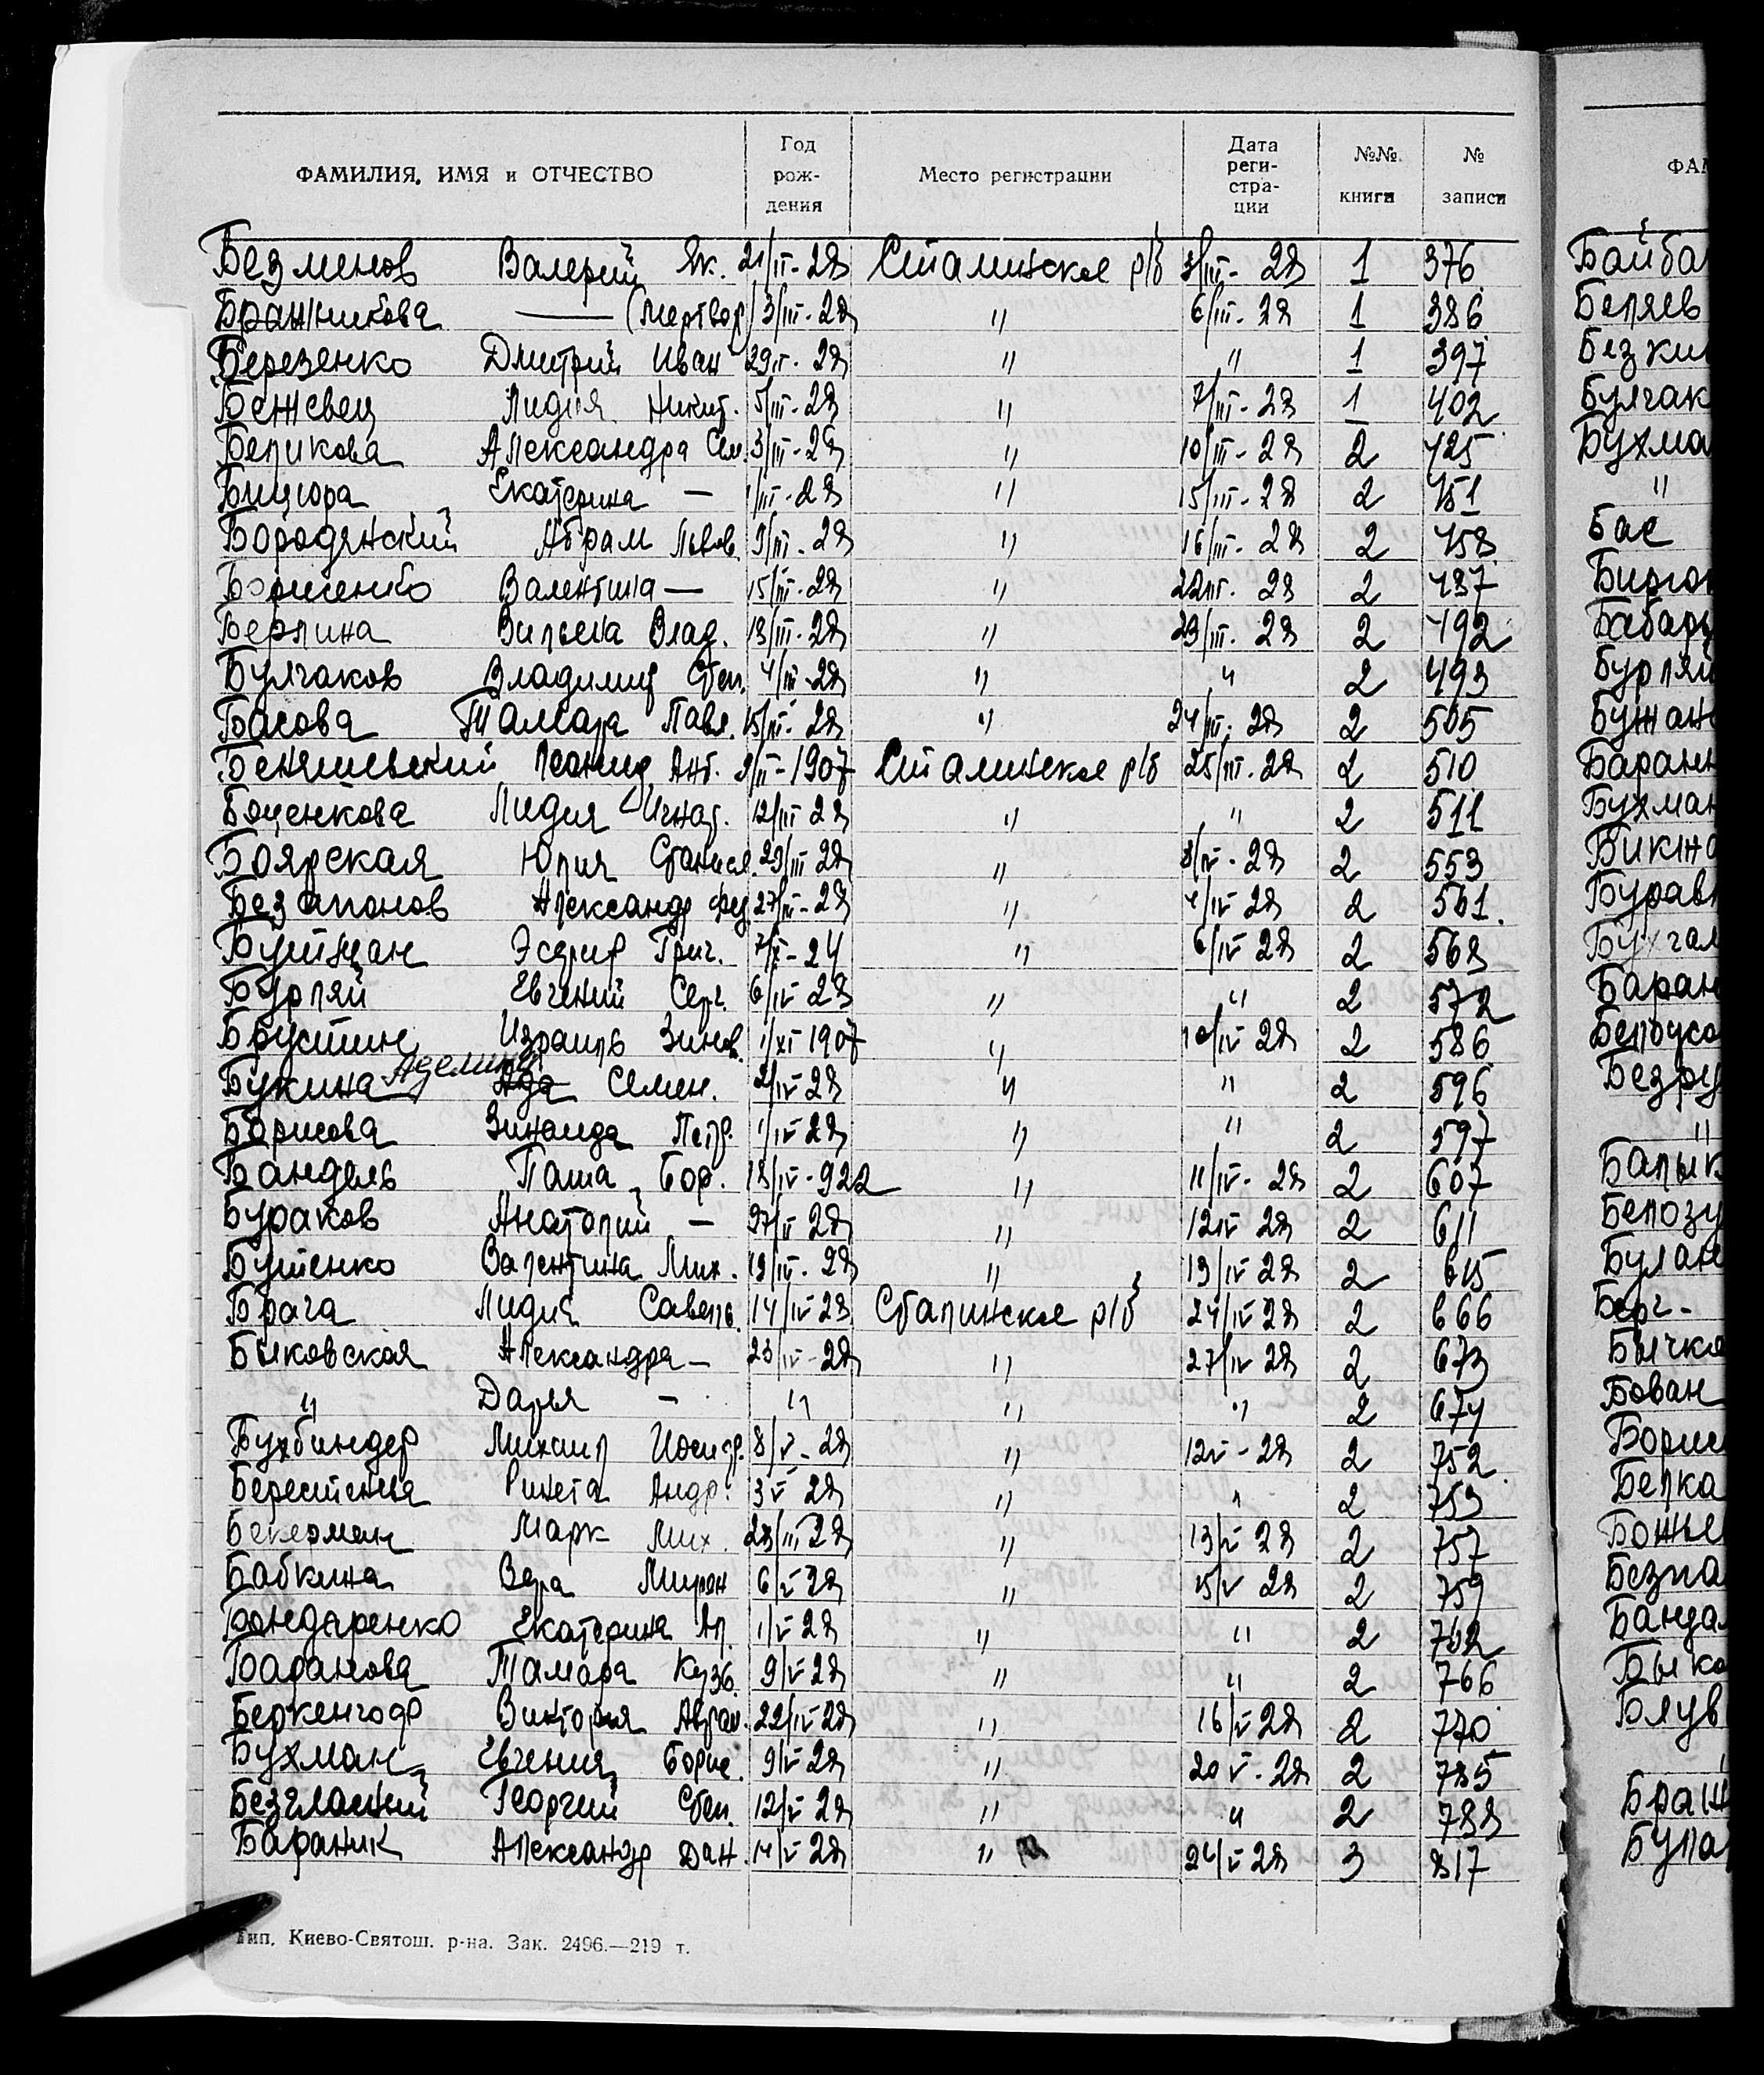 ФАМИЛИЯ, ИМЯ и ОТЧЕСТВО Год рож- дения Место регистрации Дата реги- стра- ции №№ книги № записи
Безменов Валерий Як. 21/II-28 Сталинское р/б 3/III-28 1 376
Бранникова — (Мертвор) 3/III-28 " 6/III-28 1 386
Березенко Дмитрий Иван 29II-28 " " 1 397
Бежевец Лидия Никит. 5/III-28 " 7/III-28 1 402
Беликова Александра Сем. 3/III-28 " 10/III-28 2 425
Бицюра Екатерина — 1/III-28 " 15/III-28 2 451
Бородянский Абрам Львов. 9/III-28 " 16/III-28 2 458
Борисенко Валентина — 15/III-28 " 22III-28 2 487
Берлина Вильена Влад. 13/III-28 " 23/III-28 2 492
Булгаков Владимир Степ. 4/III-28 " " 2 493
Басова Тамара Павл. 15/III-28 " 24/III-28 2 505
Беняшевский Леонид Ант. 9/II-1907 Сталинское р/б 25/III-28 2 510
Боценкова Лидия Игнат. 12/III 28 " " 2 511
Боярская Юлия Станисл. 29/III 28 " 3/IV-28 2 553
Безапонов Александр Фед 27/III-28 " 4/IV 28 2 561.
Буйтман Эсфир Григ. 7/X-24 " 6/IV 28 2 568
Бурляй Евгений Серг. 6/IV 28 " " 2 572
Брустин Израиль Зинов. 1/XI 1907 " 10/IV 28 2 586
Аделина
Букина Ада Семен. 2/IV 28 " " 2 596
Борисова Зинаида Петр. 1/IV 28 " " 2 597
Бандель Паша Бор. 18/IV-922 " 11/IV-28 2 607
Бураков Анатолий — 27/II 28 " 12IV 28 2 611
Бутенко Валентина Мих. 19/III-28 " 19/IV 28 2 615
Брага Лидия Савель. 14/IV 28 Сталинское р/б 24/IV 28 2 666
Быковская Александра — 23/IV-28 " 27/IV 28 2 673
" Дарья — " " " 2 674
Бухбиндер Михаил Иосиф. 8/V-28 " 12V-28 2 752
Берестенна Ринета Андр. 3V 28 " " 2 753
Бекерман Марк Мих. 28/III 28 " 13/V 28 2 757
Бабкина Вера Мирон 6/V 28 " 15/V 28 2 759
Бондаренко Екатерина Ал. 1/V 28 " " 2 762
Баранова Тамара Кузь. 9/V 28 " " 2 766
Беркенгоф Виктория Абрам. 22/IV 28 " 16/V 28 2 770
Бухман Евгения Борис. 9/V 28 " 20 V-28 2 785
Безгласный Георгий Степ. 12/V 28 " " 2 788
Бараник Александр Дан. 14/V 28 " 24/V 28 3 817
Тип. Киево-Святош. р-на. Зак. 2496.—219 т.
ФАМ
Байба
Беляев
Безки
Булгак
Бухма
"
Бас
Бирюк
Бабару
Бурляй
Бужан
Баранн
Бухман
Бикин
Бурав
Бухгал
Баран
Белоусо
Безру
"
Балык
Белозу
Булан
Берг-
Бычко
Бован
Борис
Белка
Божье
Безпа
Банда
Быко
Блув
Браж
Була